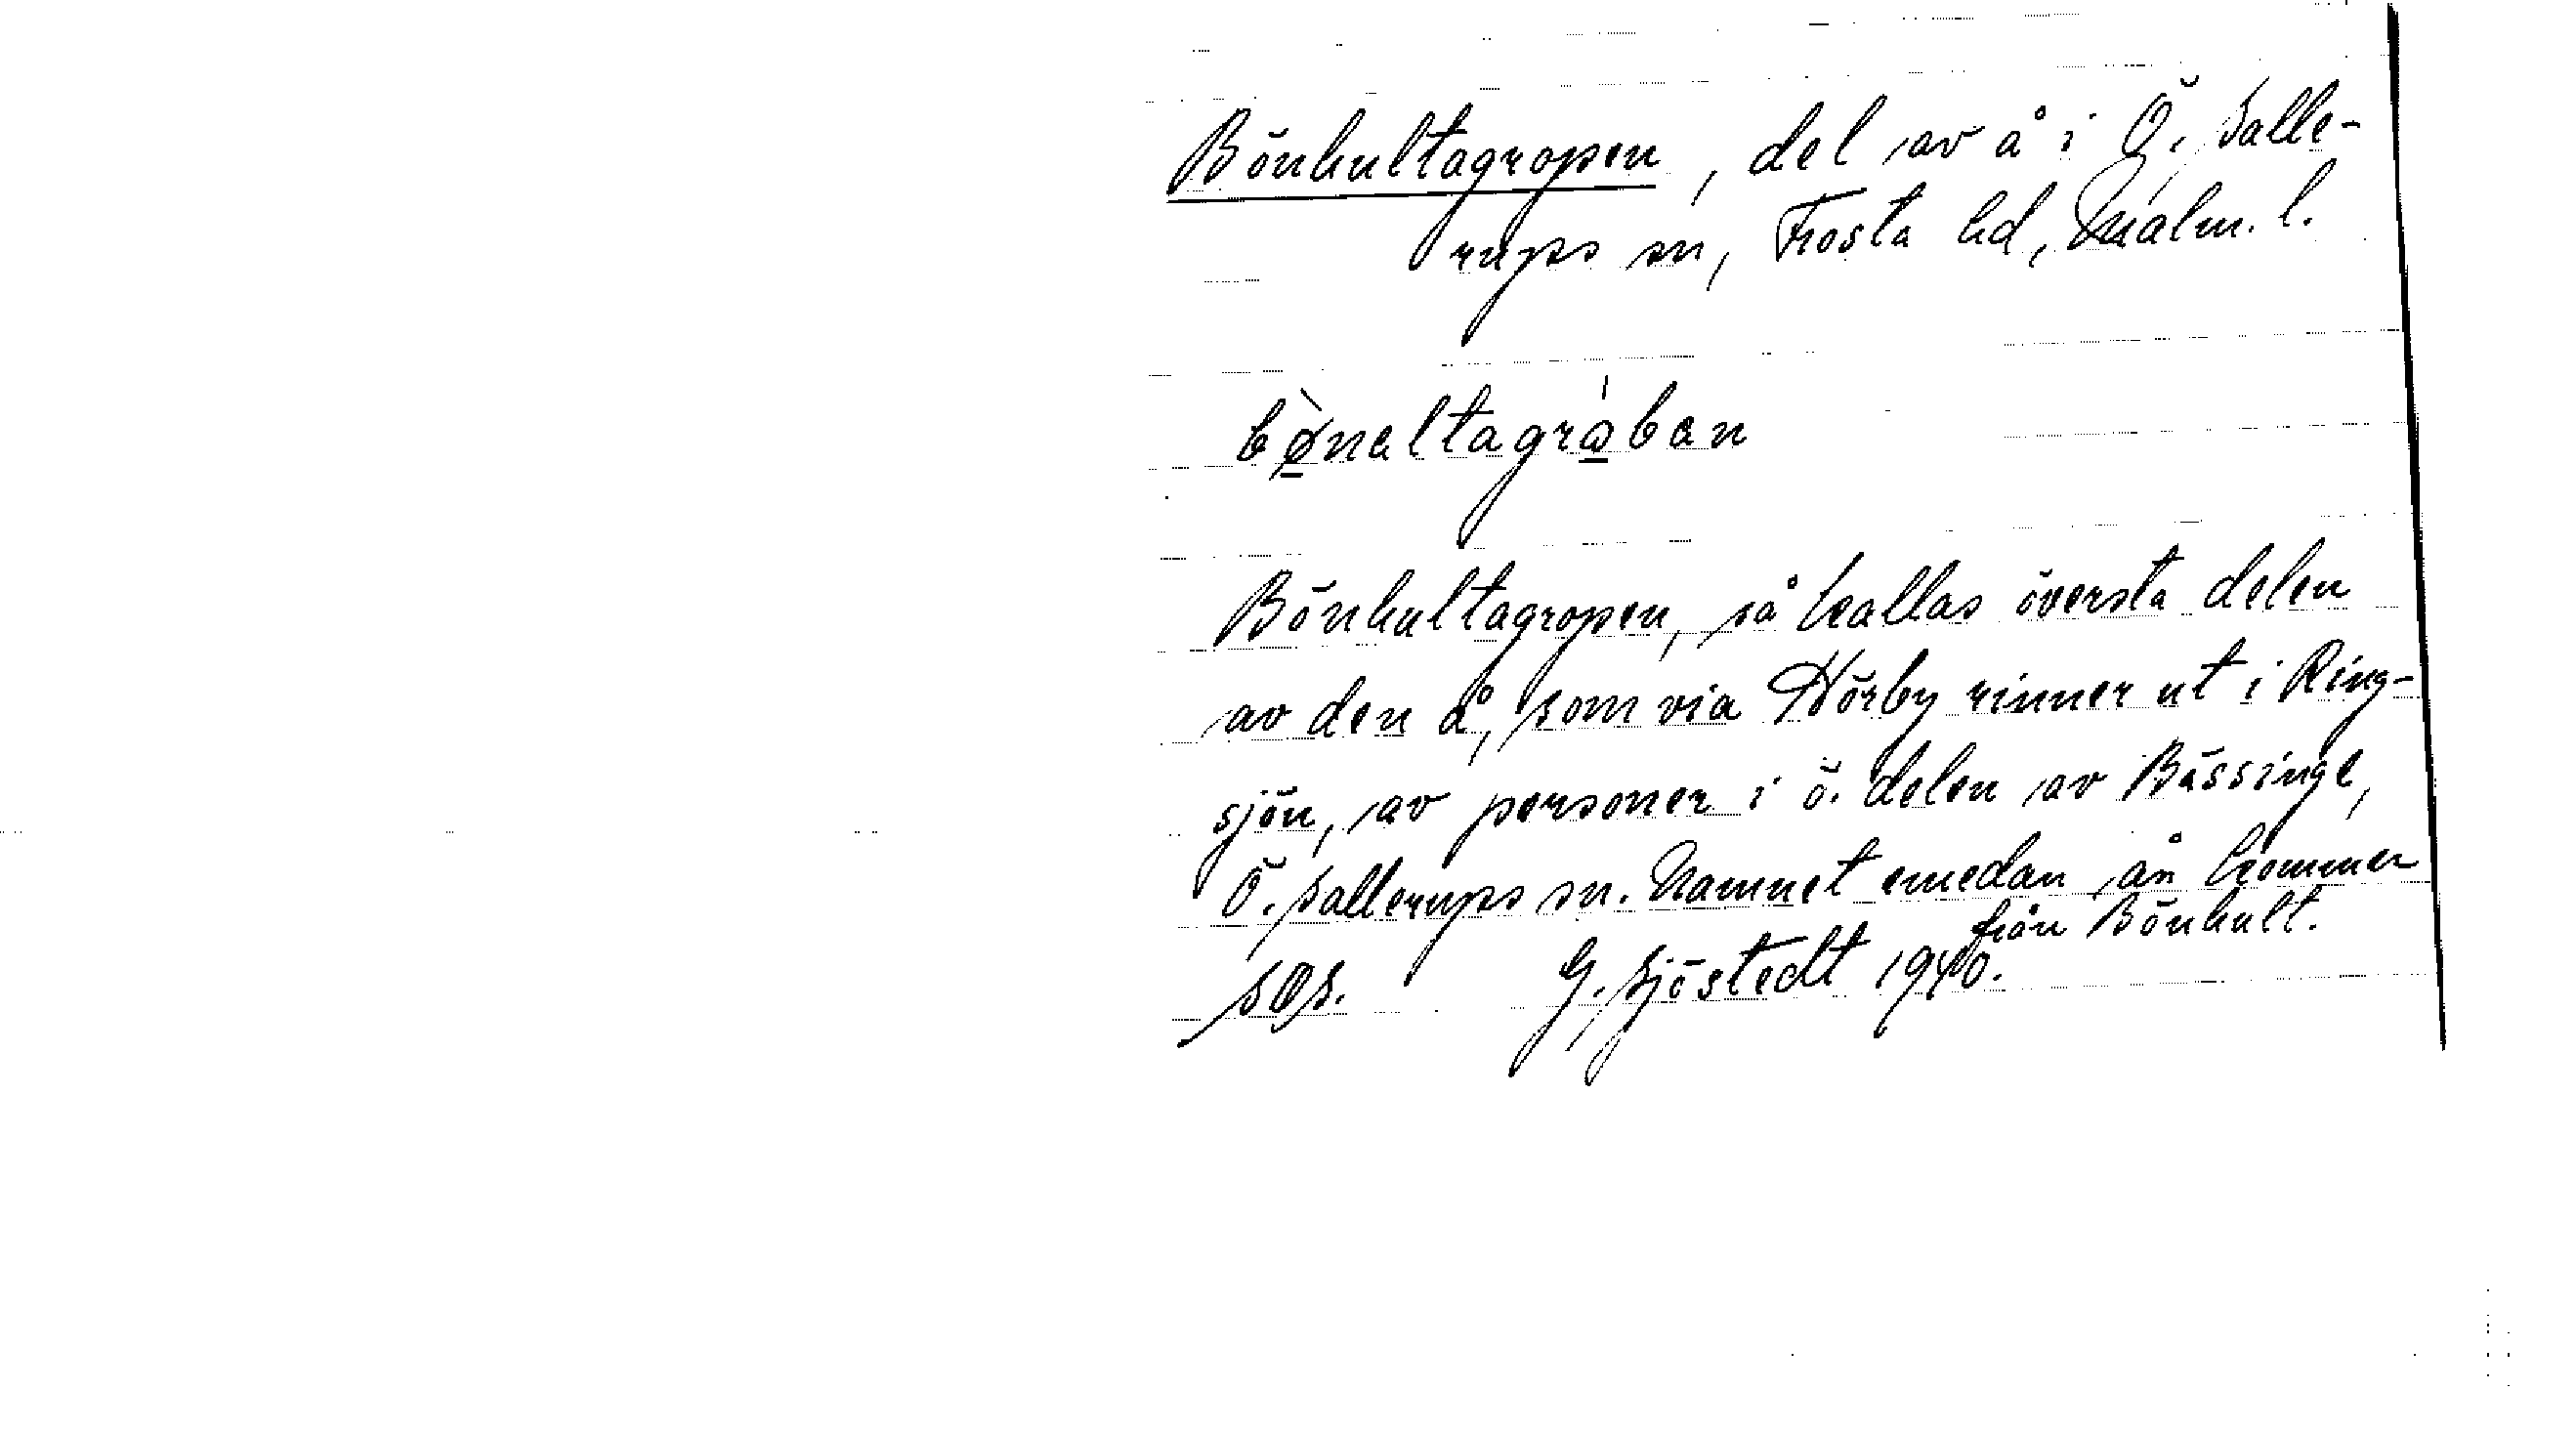 Bönhultagropen, del av å i Ö. Salle-
rups sn, Frosta hd, Malm. l.
bø̀naltagrａ̊́ban
Bönhultagropen, så kallas översta delen
av den å, som via Hörby rinner ut i Ring-
sjön, av personer i ö. delen av Bässinge,
Ö. Sallerups sn. Namnet emedan ån kommer
från Bönhult.
SOS. G. Sjöstedt 1940.